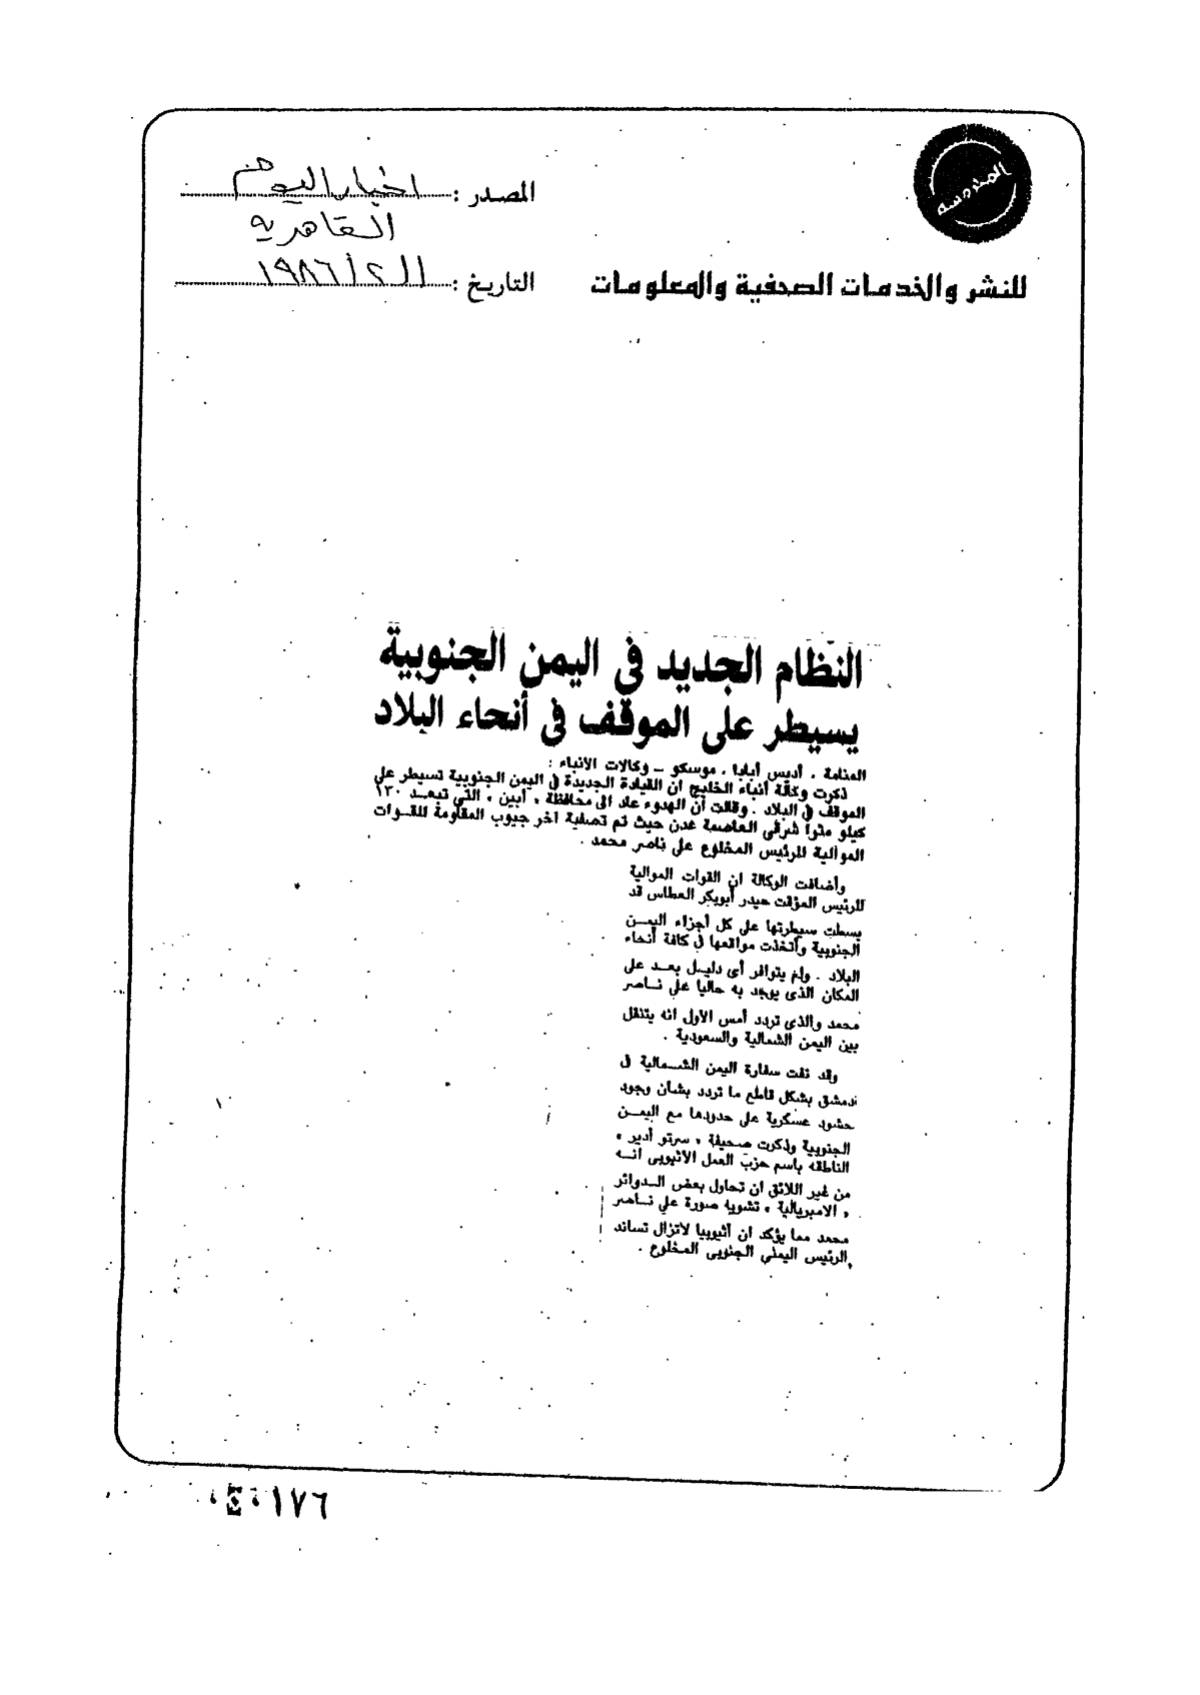 المحروسة
المصدر : اخبار اليوم
القاهرية
للنشر والخدمات الصحفية والمعلومات
التاريخ : ١ / ٢ / ١٩٨٦
النظام الجديد فى اليمن الجنوبية
يسيطر على الموقف فى أنحاء البلاد
المنامة ، أديس أبابا ، موسكو - وكالات الانباء :
ذكرت وكالة أنباء الخليج ان القيادة الجديدة فى اليمن الجنوبية تسيطر على
الموقف فى البلاد . وقالت أن الهدوء عاد الى محافظة « أبين » التى تبعد ١٣٠
كيلو مترا شرقى العاصمة عدن حيث تم تصفية اخر جيوب المقاومة للقوات
الموالية للرئيس المخلوع على ناصر محمد .
وأضافت الوكالة ان القوات الموالية
للرئيس المؤقت حيدر أبوبكر العطاس قد
بسطت سيطرتها على كل أجزاء اليمن
الجنوبية وأتخذت مواقعها فى كافة أنحاء
البلاد . ولم يتوافر أى دليل بعد على
المكان الذى يوجد به حاليا على ناصر
محمد والذى تردد أمس الأول انه يتنقل
بين اليمن الشمالية والسعودية .
وقد نفت سفارة اليمن الشمالية فى
دمشق بشكل قاطع ما تردد بشأن وجود
حشود عسكرية على حدودها مع اليمن
الجنوبية وذكرت صحيفة « سرتو أدير »
الناطقه باسم حزب العمل الاثيوبى انه
من غير اللائق ان تحاول بعض الدوائر
« الامبريالية » تشويه صورة على ناصر
محمد مما يؤكد ان أثيوبيا لاتزال تساند
الرئيس اليمنى الجنوبى المخلوع .
١٧٦